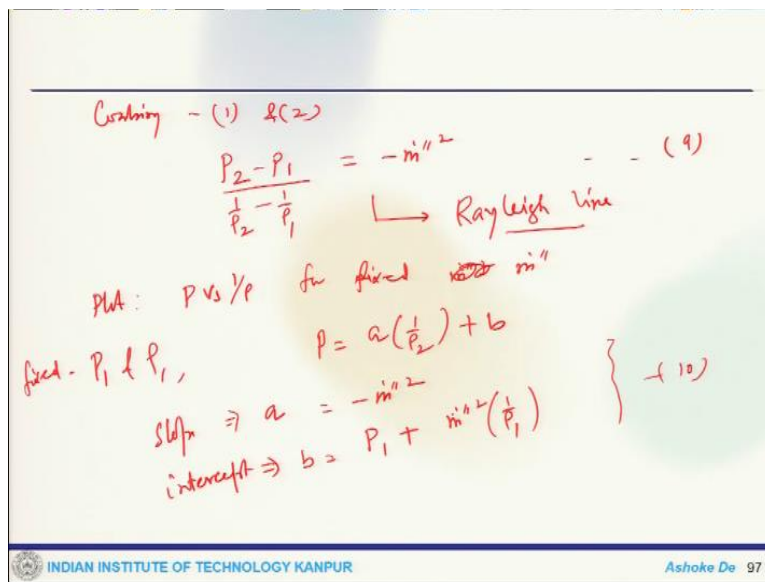 Combining - (1) &(2)
P₂-P₁ / (1/ρ₂ - 1/ρ₁) = -ṁ″² - - (9)
↳ Rayleigh line
Plot: P vs 1/ρ for fixed ṁ″
P = a(1/ρ₂)+b
fixed - P₁ & ρ₁,
slope ⇒ a = -ṁ″²
intercept ⇒ b = P₁ + ṁ″²(1/ρ₁) } -(10)
INDIAN INSTITUTE OF TECHNOLOGY KANPUR
Ashoke De 97